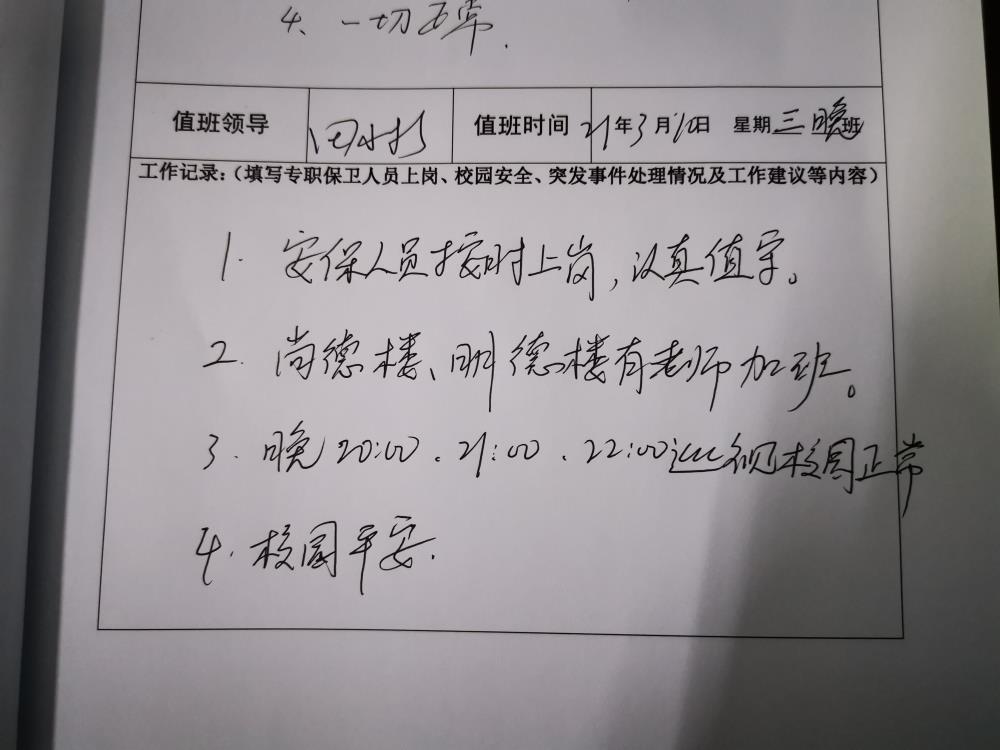 4、一切正常.
值班领导 田 值班时间 21年3月10日 星期三晚班
工作记录:(填写专职保卫人员上岗、校园安全、突发事件处理情况及工作建议等内容)
1. 安保人员按时上岗,认真值守。
2. 尚德楼、明德楼有老师加班。
3. 晚20:00、21:00、22:00巡视校园正常
4. 校园平安.